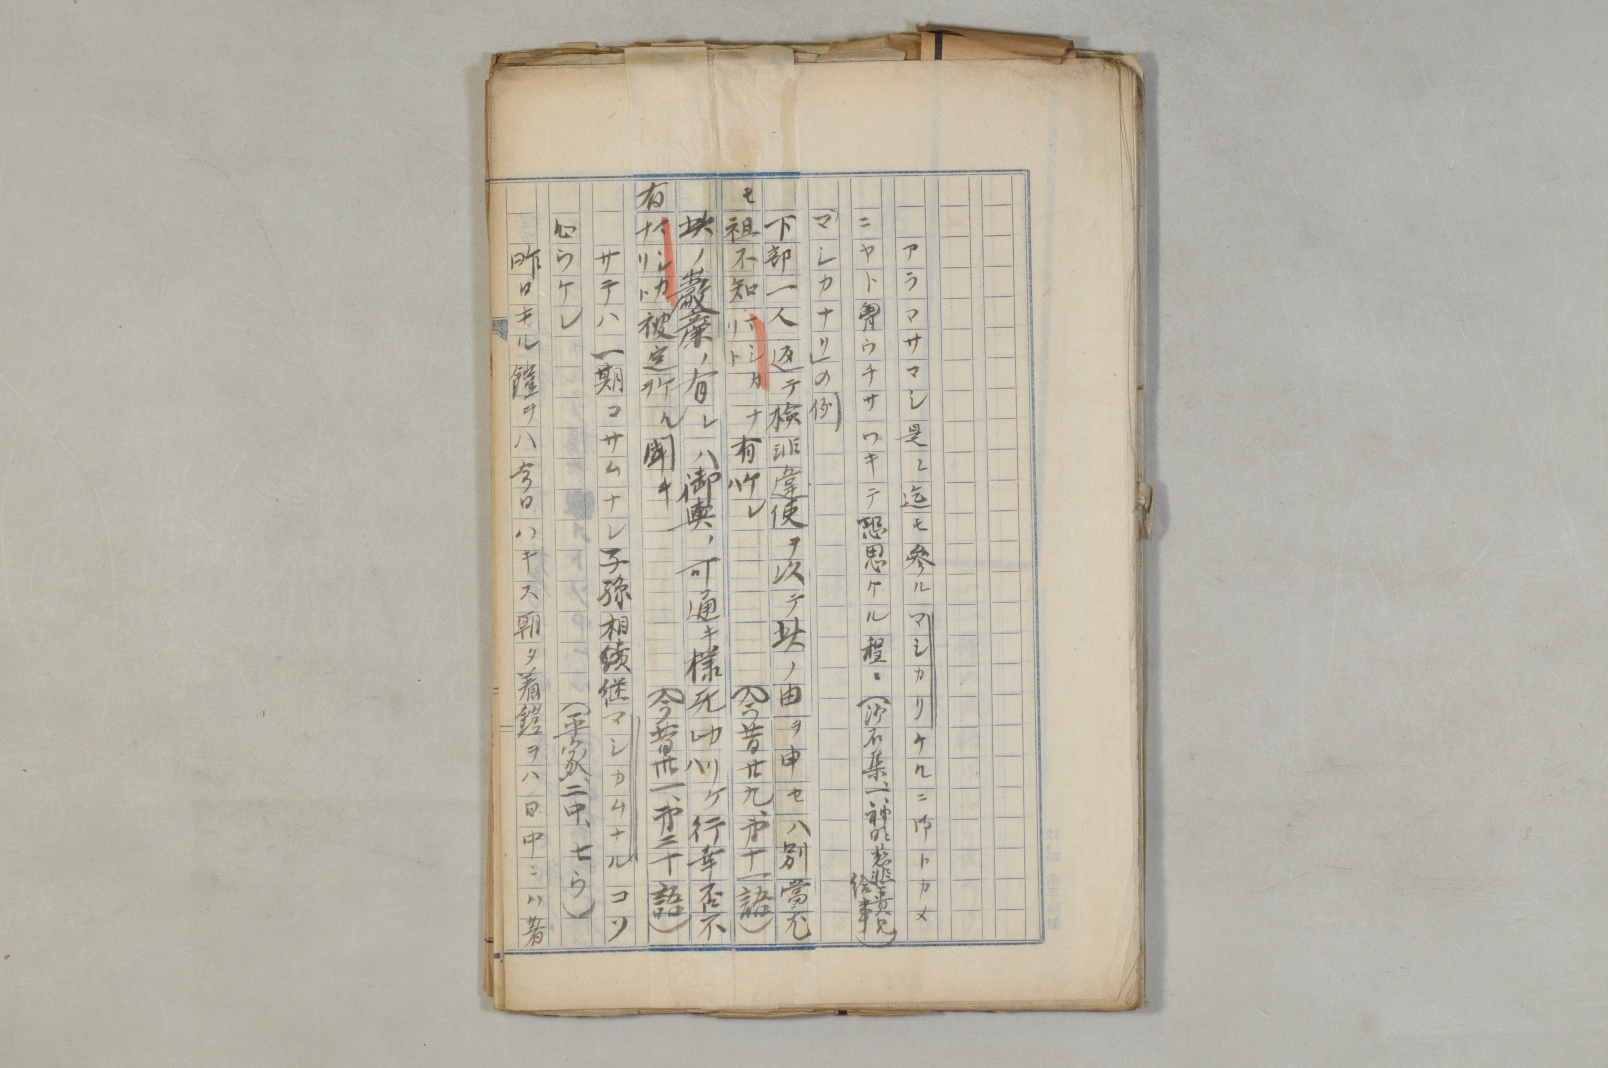 アラマサマシ是マ迄モ参ルマシカリケルニ御トカメ
ニヤト胃ウチサワキテ恐思ケル程ニ(沙石集、一、神明慈悲貴給事)
マシカナリ」の例)
下部一人返テ検非違使ヲ以テ此ノ由ヲ申セハ別當尤
モ祖不知マシカナリト有ケレハ(今昔廿九、第十一語)
此ノ巌廉ノ有レハ御輿ノ可通キ様死カリケリハ行幸否不
有マシカナリト被定ケルヲ聞キ(今昔卅一、第三十語)
サテハ一期コサムナレ子孫相續継マシカムナルコソ
心ウケレ(平家、二中、七ウ)
昨日キル鎧ヲハ今日ハキス朝夕着鎧ヲハ日中ニハ著